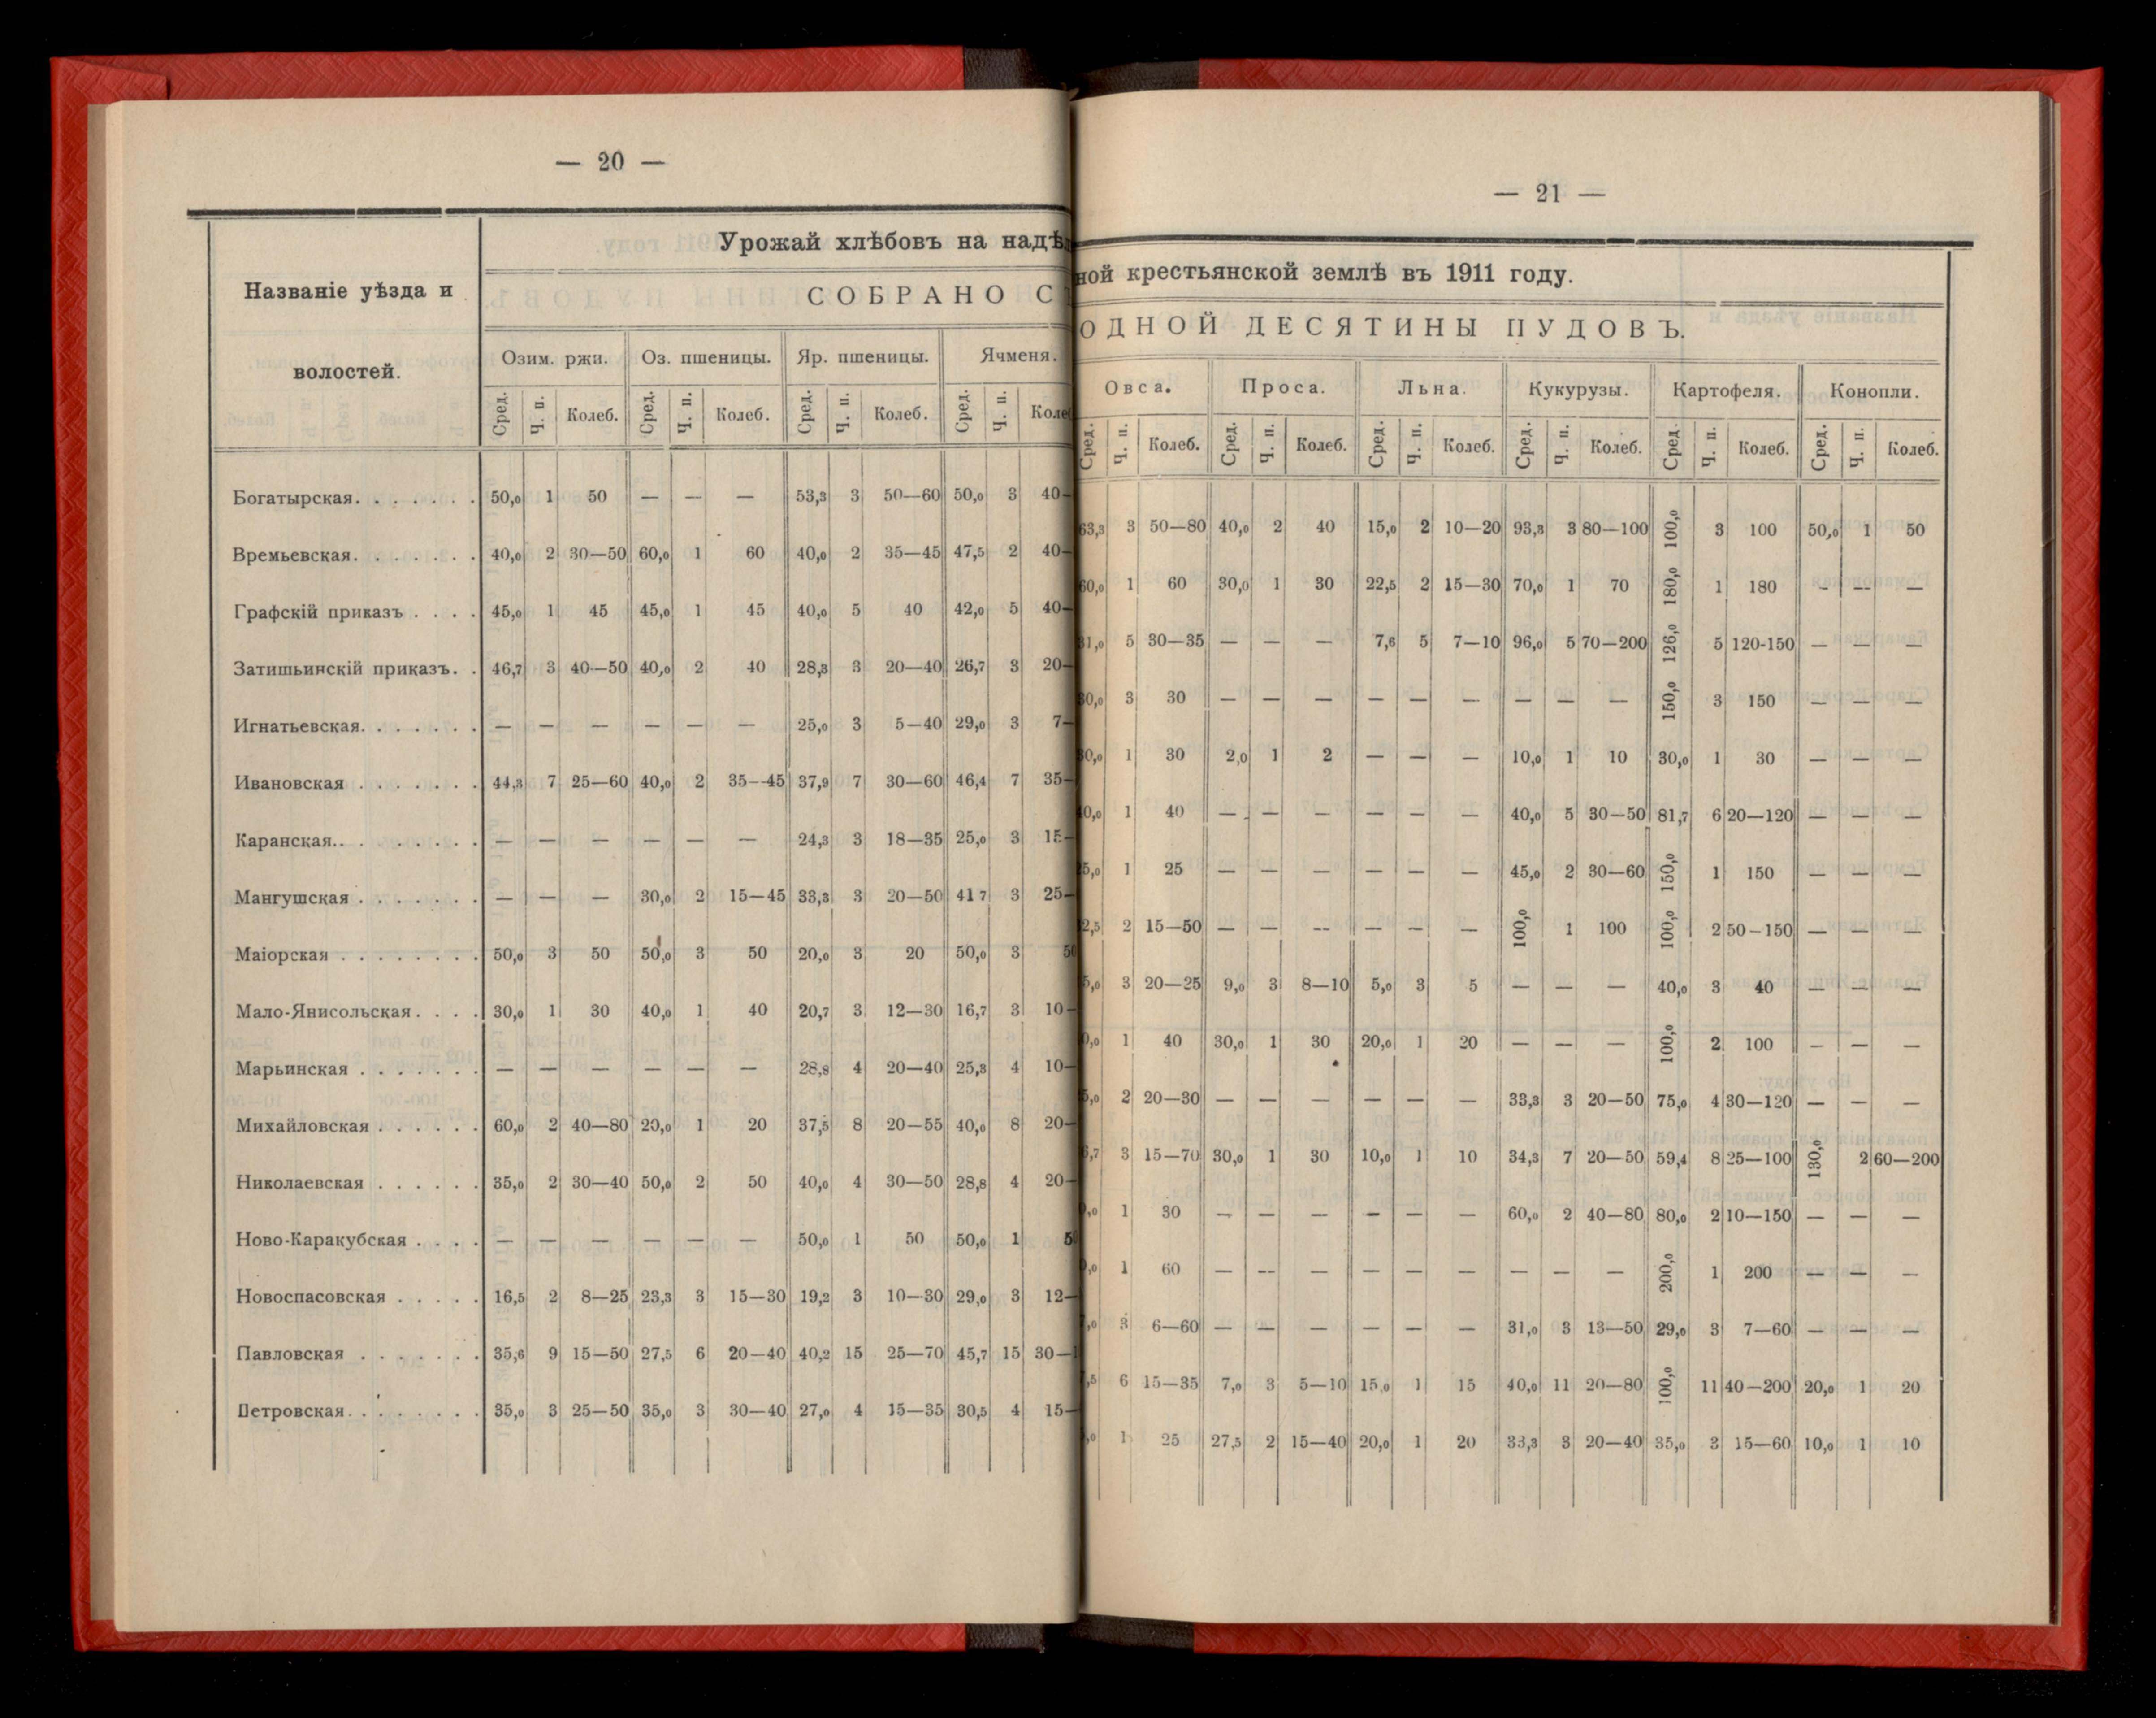 — 20 —
Урожай хлѣбовъ на надѣ
Названіе уѣзда и
волостей.
СОБРАНО С
Озим. ржи. Оз. пшеницы. Яр. пшеницы. Ячменя.
Сред. Ч. п. Колеб. Сред. Ч. п. Колеб. Сред. Ч. п. Колеб. Сред. Ч. п. Колеб
Богатырская. . . . . . . 50,0 1 50 — — — 53,3 3 50—60 50,0 3 40—
Времьевская. . . . . . . 40,0 2 30—50 60,0 1 60 40,0 2 35—45 47,5 2 40—
Графскій приказъ . . . . 45,0 1 45 45,0 1 45 40,0 5 40 42,0 5 40—
Затишьинскій приказъ. . 46,7 3 40—50 40,0 2 40 28,3 3 20—40 26,7 3 20—
Игнатьевская. . . . . . . — — — — — — 25,0 3 5—40 29,0 3 7—
Ивановская . . . . . . . 44,3 7 25—60 40,0 2 35—45 37,9 7 30—60 46,4 7 35—
Каранская.. . . . . . . . — — — — — — 24,3 3 18—35 25,0 3 15—
Мангушская . . . . . . . — — — 30,0 2 15—45 33,3 3 20—50 41 7 3 25—
Маіорская . . . . . . . . 50,0 3 50 50,0 3 50 20,0 3 20 50,0 3 50
Мало-Янисольская. . . . 30,0 1 30 40,0 1 40 20,7 3 12—30 16,7 3 10—
Марьинская . . . . . . . — — — — — — 28,8 4 20—40 25,3 4 10—
Михайловская . . . . . . 60,0 2 40—80 20,0 1 20 37,5 8 20—55 40,0 8 20—
Николаевская . . . . . . 35,0 2 30—40 50,0 2 50 40,0 4 30—50 28,8 4 20—
Ново-Каракубская . . . . — — — — — — 50,0 1 50 50,0 1 50
Новоспасовская . . . . . 16,5 2 8—25 23,3 3 15—30 19,2 3 10—30 29,0 3 12—
Павловская . . . . . . . 35,6 9 15—50 27,5 6 20—40 40,2 15 25—70 45,7 15 30—
Петровская. . . . . . . . 35,0 3 25—50 35,0 3 30—40 27,0 4 15—35 30,5 4 15—
— 21 —
ной крестьянской землѣ въ 1911 году.
ОДНОЙ ДЕСЯТИНЫ ПУДОВЪ.
Овса. Проса. Льна. Кукурузы. Картофеля. Конопли.
Сред. Ч. п. Колеб. Сред. Ч. п. Колеб. Сред. Ч. п. Колеб. Сред. Ч. п. Колеб. Сред. Ч. п. Колеб. Сред. Ч. п. Колеб.
63,3 3 50—80 40,0 2 40 15,0 2 10—20 93,3 3 80—100 100,0 3 100 50,0 1 50
60,0 1 60 30,0 1 30 22,5 2 15—30 70,0 1 70 180,0 1 180 — — —
31,0 5 30—35 — — — 7,6 5 7—10 96,0 5 70—200 126,0 5 120-150 — — —
30,0 3 30 — — — — — — — — — 150,0 3 150 — — —
30,0 1 30 2,0 1 2 — — — 10,0 1 10 30,0 1 30 — — —
40,0 1 40 — — — — — — 40,0 5 30—50 81,7 6 20—120 — — —
5,0 1 25 — — — — — — 45,0 2 30—60 150,0 1 150 — — —
2,5 2 15—50 — — — — — — 100,0 1 100 100,0 2 50—150 — — —
5,0 3 20—25 9,0 3 8—10 5,0 3 5 — — — 40,0 3 40 — — —
0,0 1 40 30,0 1 30 20,0 1 20 — — — 100,0 2 100 — — —
5,0 2 20—30 — — — — — — 33,3 3 20—50 75,0 4 30—120 — — —
6,7 3 15—70 30,0 1 30 10,0 1 10 34,3 7 20—50 59,4 8 25—100 130,0 2 60—200
,0 1 30 — — — — — — 60,0 2 40—80 80,0 2 10—150 — — —
,0 1 60 — — — — — — — — — 200,0 1 200 — — —
,0 3 6—60 — — — — — — 31,0 3 13—50 29,0 3 7—60 — — —
,5 6 15—35 7,0 3 5—10 15,0 1 15 40,0 11 20—80 100,0 11 40—200 20,0 1 20
,0 1 25 27,5 2 15—40 20,0 1 20 33,3 3 20—40 35,0 3 15—60 10,0 1 10